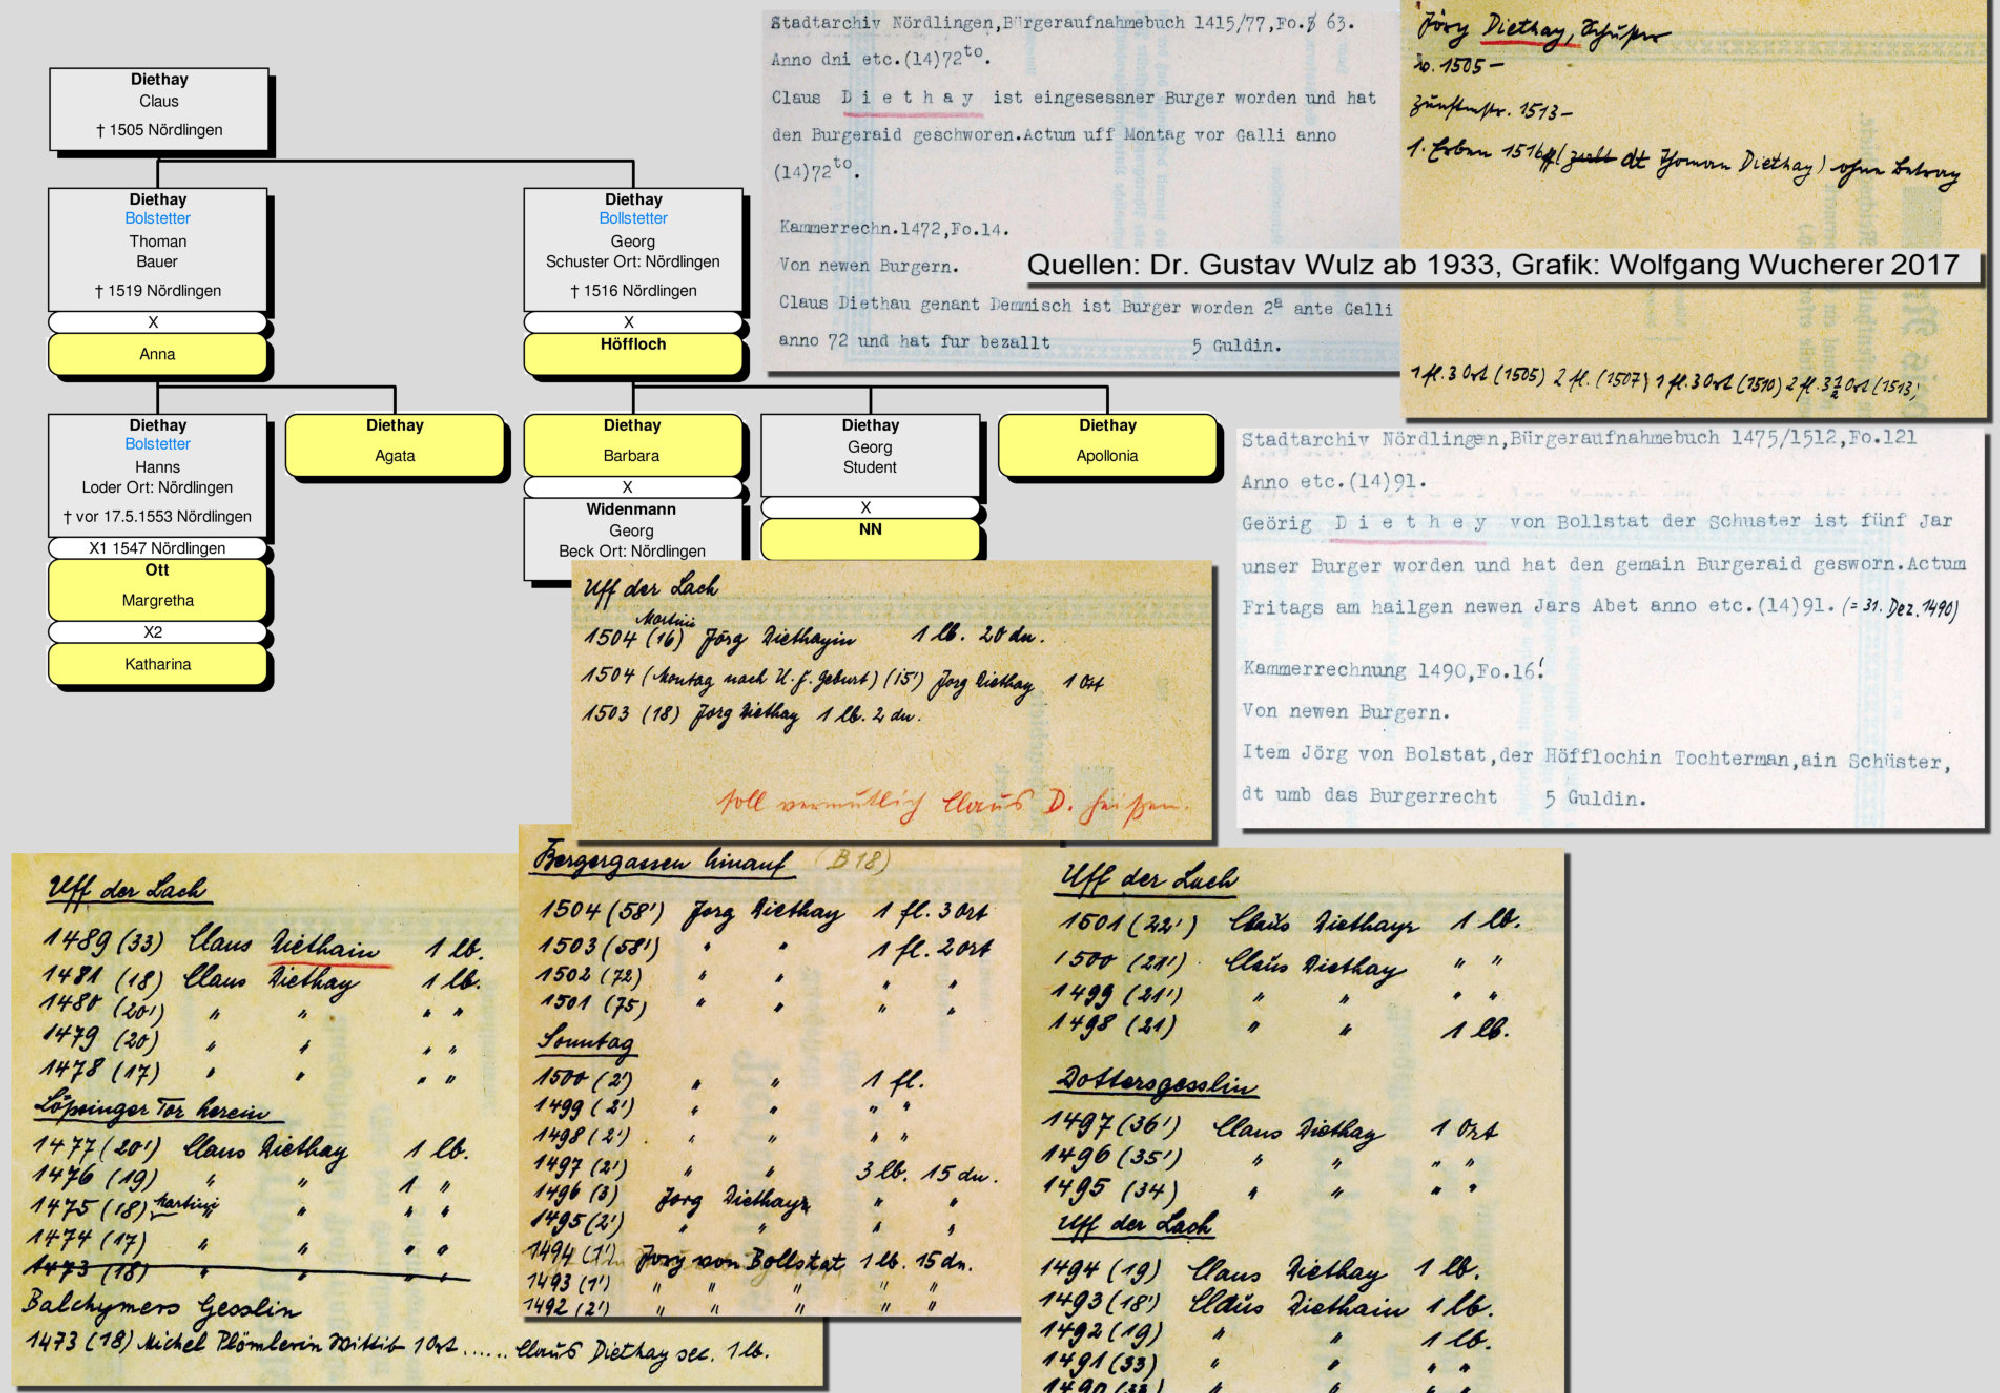 Diethay
Claus
† 1505 Nördlingen
Diethay
Bolstetter
Thoman
Bauer
† 1519 Nördlingen
X
Anna
Diethay
Bollstetter
Georg
Schuster Ort: Nördlingen
† 1516 Nördlingen
X
Höffloch
Diethay
Bolstetter
Hanns
Loder Ort: Nördlingen
† vor 17.5.1553 Nördlingen
X1 1547 Nördlingen
Ott
Margretha
X2
Katharina
Diethay
Agata
Diethay
Barbara
X
Widenmann
Georg
Beck Ort: Nördlingen
Diethay
Georg
Student
X
NN
Diethay
Apollonia
Stadtarchiv Nördlingen,Bürgeraufnahmebuch 1415/77,Fo. 63.
Anno dni etc.(14)72to.
Claus D i e t h a y ist eingesessner Burger worden und hat
den Burgeraid geschworen.Actum uff Montag vor Galli anno
(14)72to.
Kammerrechn.1472,Fo.14.
Von newen Burgern.
Claus Diethau genant Demmisch ist Burger worden 2a ante Galli
anno 72 und hat fur bezallt 5 Guldin.
Jörg Diethay, Schuster
1505 –
Zunftmstr. 1513 –
1. Erben 1516 ( dt Thoman Diethay) ohne Betrag
1 fl. 3 Ort (1505) 2 fl. (1507) 1 fl. 3 Ort (1510) 2 fl. 3 1/2 Ort (1513)
Quellen: Dr. Gustav Wulz ab 1933, Grafik: Wolfgang Wucherer 2017
Stadtarchiv Nördlingen,Bürgeraufnahmebuch 1475/1512,Fo.121
Anno etc.(14)91.
Geörig D i e t h e y von Bollstat der Schuster ist fünf Jar
unser Burger worden und hat den gemain Burgeraid gesworn.Actum
Fritags am hailgen newen Jars Abet anno etc.(14)91. (= 31. Dez. 1490)
Kammerrechnung 1490,Fo.16'
Von newen Burgern.
Item Jörg von Bolstat,der Höfflochin Tochterman,ain Schüster,
dt umb das Burgerrecht 5 Guldin.
Uff der Lach
Martini
1504 (16) Jörg Diethayin 1 lb. 20 dn.
1504 (Montag nach U. f. geburt) (15') Jorg Diethay 1 Ort
1503 (18) Jorg Diethay 1 lb. 2 dn.
soll vermutlich Claus D. heißen.
Uff der Lach
1489 (33) Claus Diethain 1 lb.
1481 (18) Claus Diethay 1 lb.
1480 (20') " " " "
1479 (20) " " " "
1478 (17) " " " "
Löpsinger Tor herein
1477 (20') Claus Diethay 1 lb.
1476 (19) " " 1 "
1475 (18) Martini " " " "
1474 (17) " " " "
1473 (18) " " " "
Balchymers Gesslin
1473 (18) Michel Plömlerin Wittib 1 Ort ..... Claus Diethay sec. 1 lb.
Bergergassen hinauf (B 18)
1504 (58') Jorg Diethay 1 fl. 3 Ort
1503 (58') " " 1 fl. 2 Ort
1502 (72) " " " "
1501 (75) " " " "
Sonntag
1500 (2') " " 1 fl.
1499 (2') " " " "
1498 (2') " " " "
1497 (2') " " 3 lb. 15 dn.
1496 (3) Jorg Diethayr " "
1495 (2') " " " "
1494 (1') Jorg von Bollstat 1 lb. 15 dn.
1493 (1') " " " " "
1492 (2') " " " " "
Uff der Lach
1501 (22') Claus Diethayr 1 lb.
1500 (21') Claus Diethay " "
1499 (21') " " " "
1498 (21) " " 1 lb.
Dottersgesslin
1497 (36') Claus Diethay 1 Ort
1496 (35') " " " "
1495 (34) " " " "
Uff der Lach
1494 (19) Claus Diethay 1 lb.
1493 (18') Claus Diethain 1 lb.
1492 (19) " " 1 lb.
1491 (33) " " " "
1490 (33) " " " "